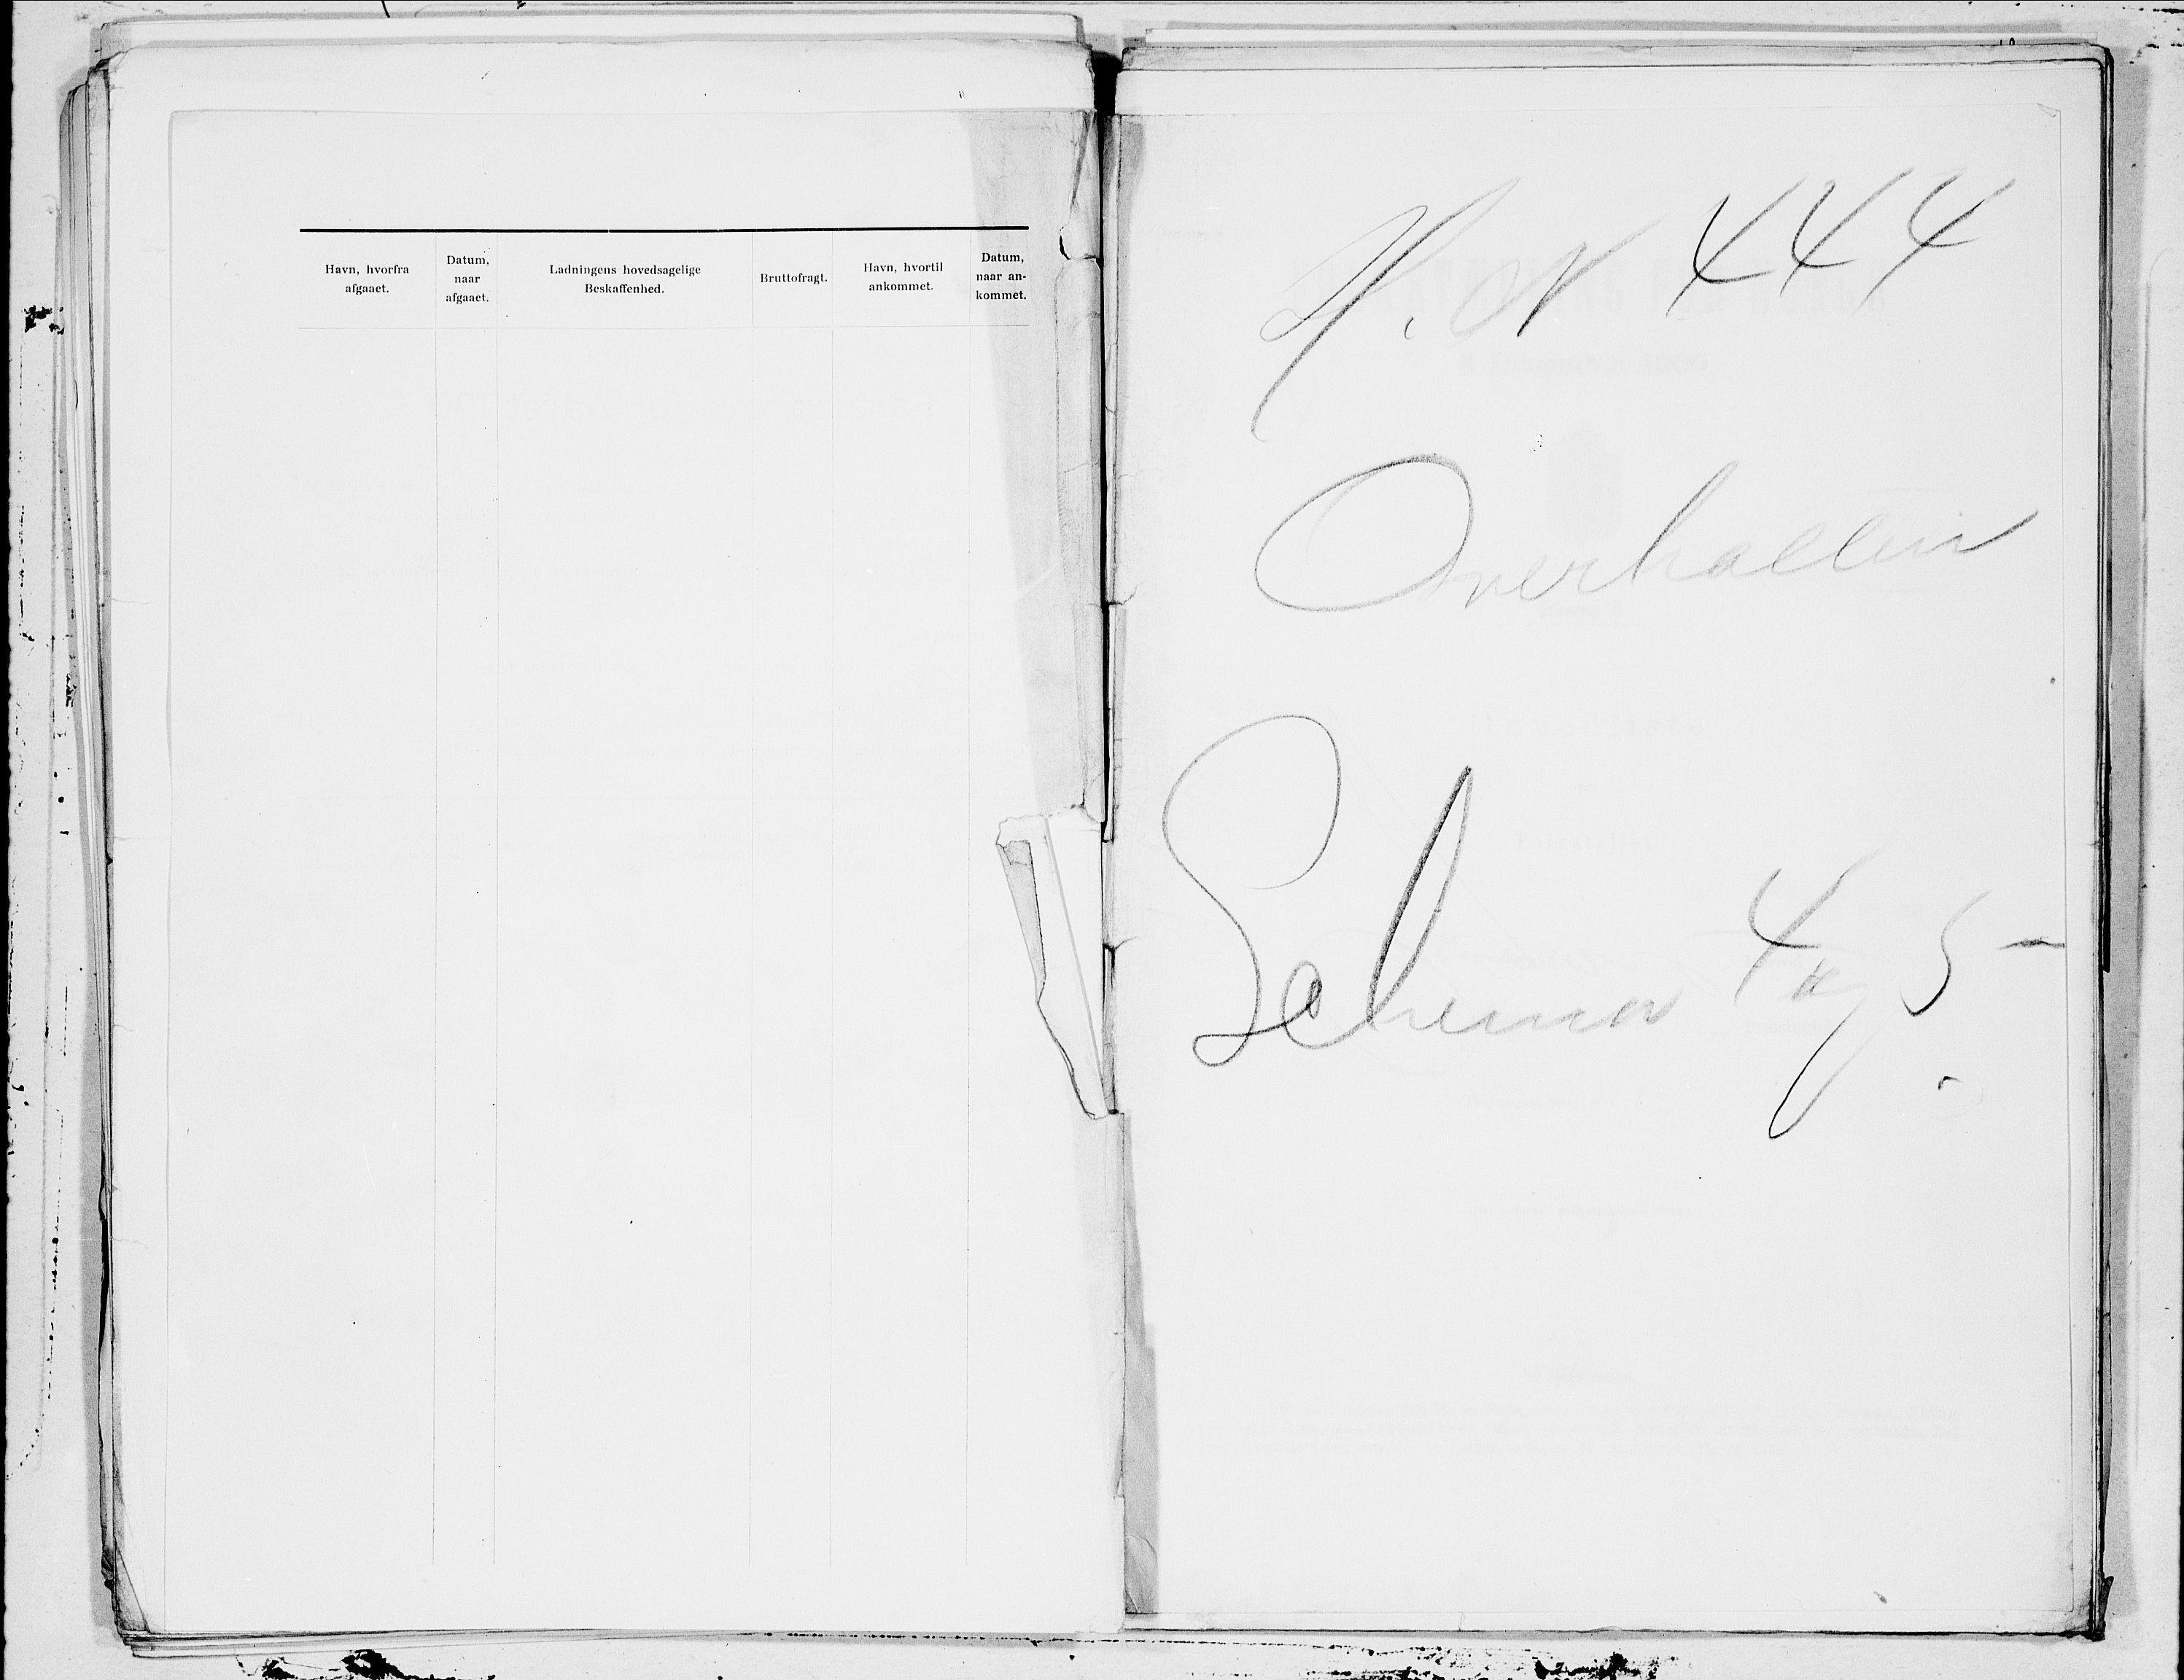 Havn, hvorfra
afgaaet.
Datum,
naar
afgaaet.
Ladningens hovedsagelige
Beskaffenhed.
Bruttofragt.
Havn, hvortil
ankommet.
Datum,
naar an-
kommet.
H. N 444
Overhallen
Schema 4 og 5